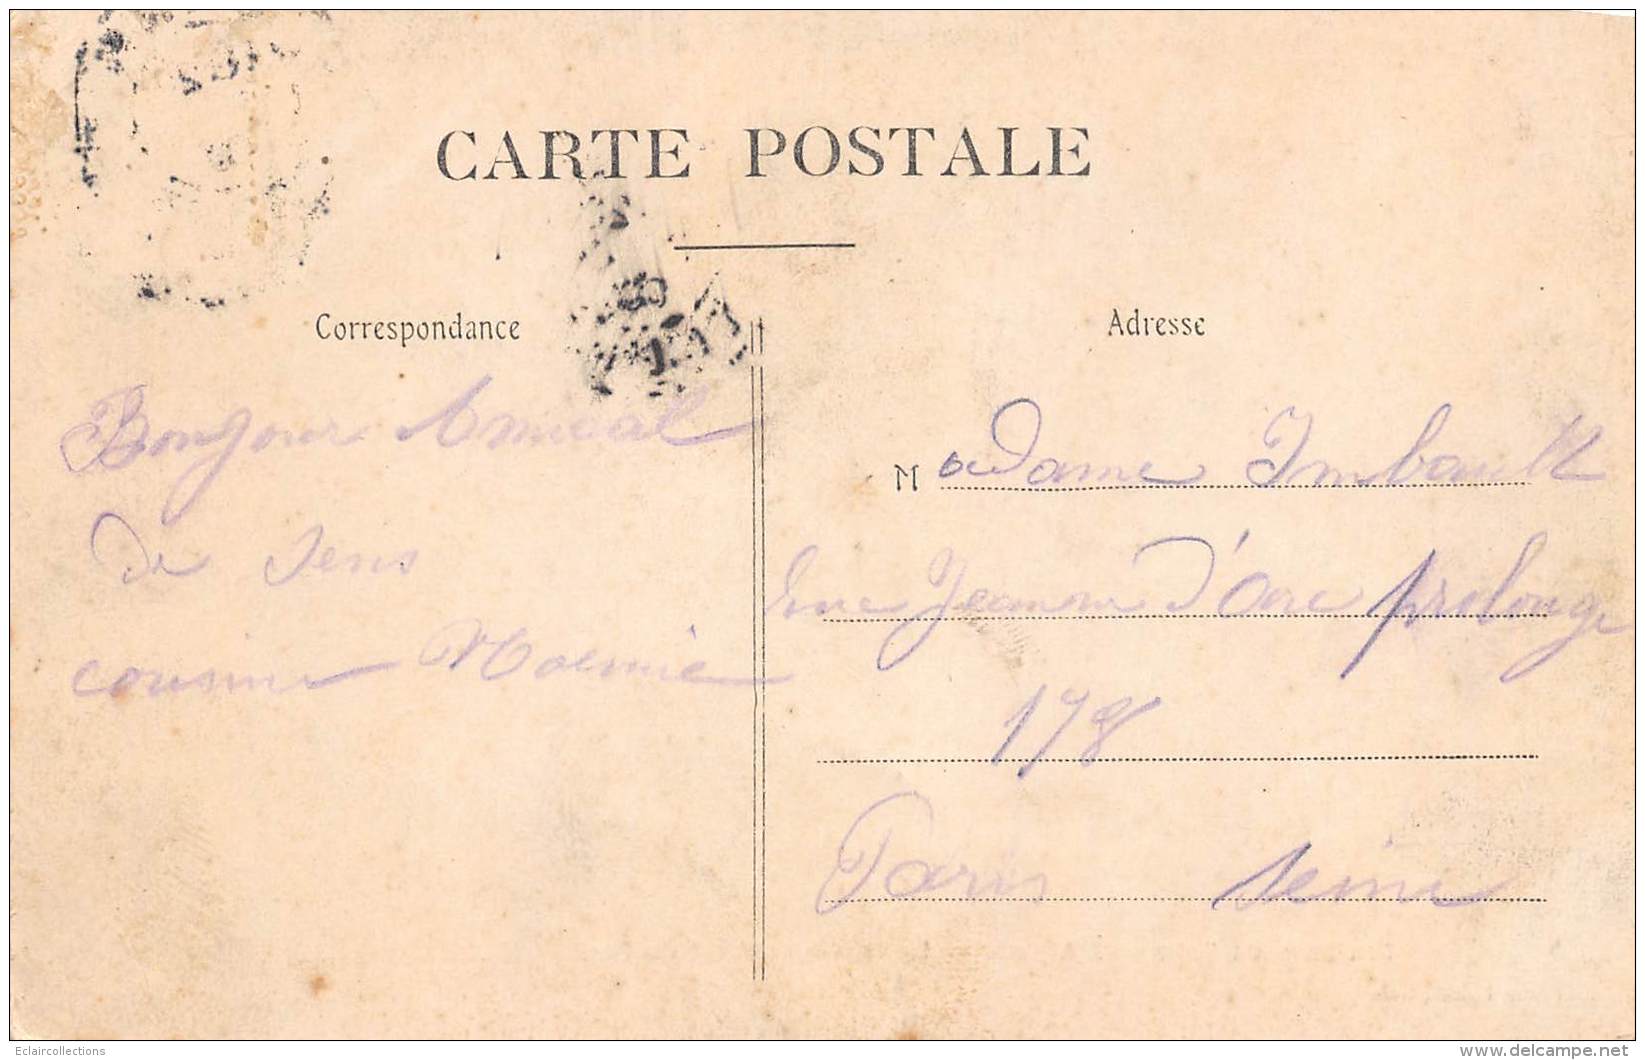 CARTE POSTALE
Correspondance
Adresse
Bonjour Amical
de Sens
cousine Noemie
Madame Imbault
rue Jeanne d'Arc prolongé
178
Paris Seine
Eclaircollections
www.delcampe.net